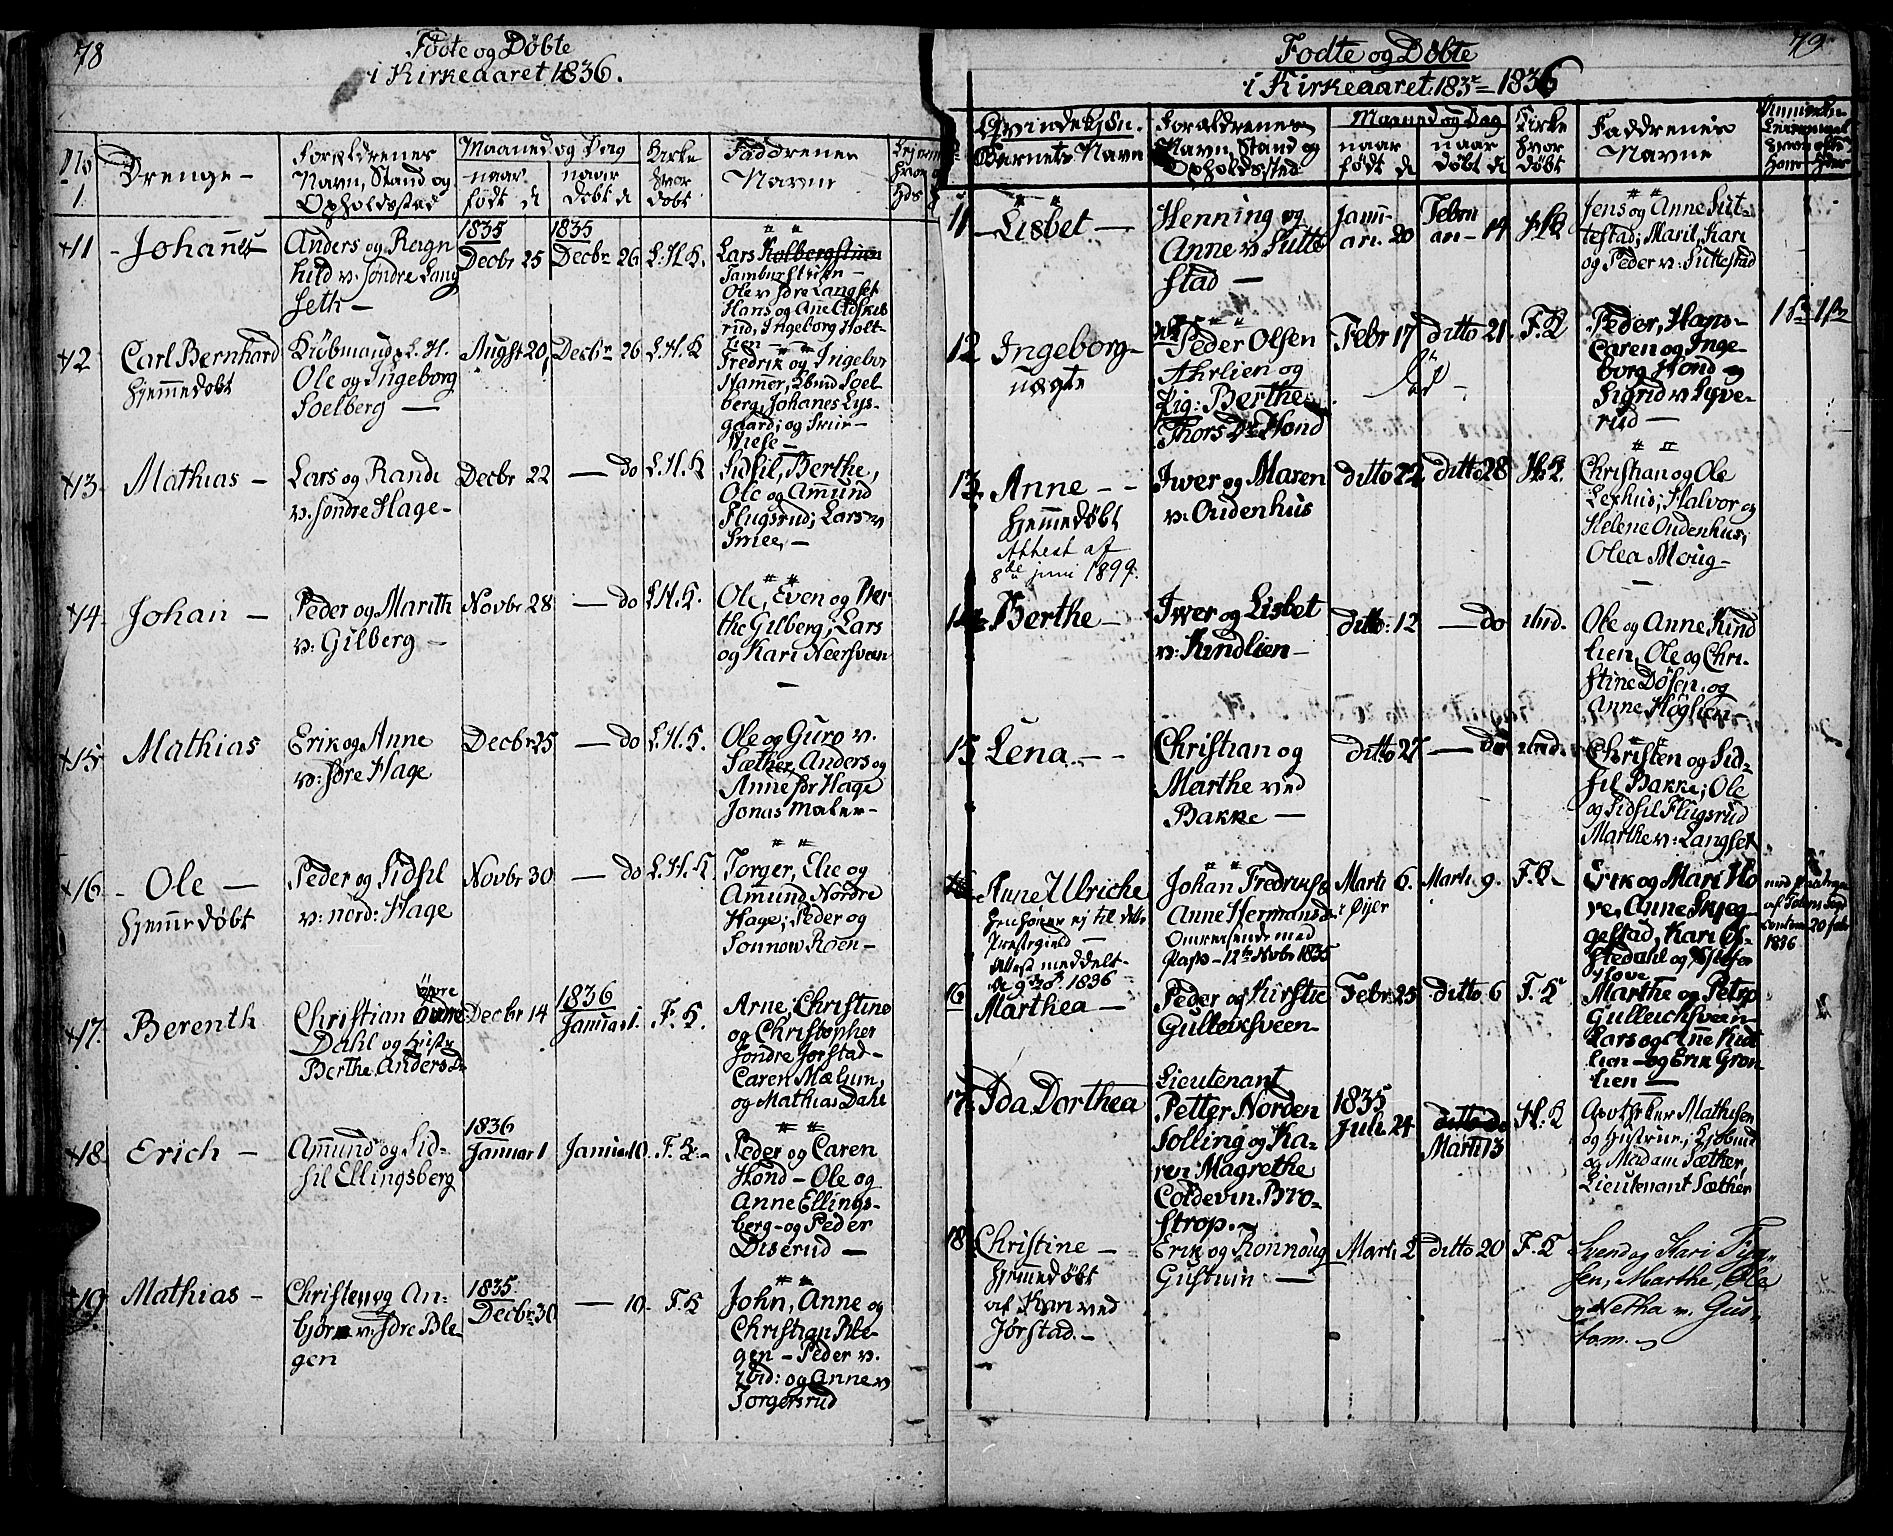 78
Födte og Döbte
i Kirkeaaret 1836.
No
1.
Drenge-
Forældrenes
Navn, Stand og
Opholdssted
Maaned og Dag
naar
födt d
naar
döbt d
Kirke
hvor
döbt
Faddrenes
Navne
11
Johannes
Anders og Ragn
hild v: søndre Lang
seth —
1835
Decbr 25
1835
Decbr 26
L. H. K.
Lars Kolbergstuen
Ole v: sdre Langset
Hans og Anne
rud, Ingeborg Holt-
lien —
12
Carl Bernhard
hjemmedøbt
Kiöbmand L. H.
Ole og Ingeborg
Soelberg —
August 20
Decbr 26
L. H. K
Fredrik og Ingebor
Hamer, Soel-
berg, Johanes Lys-
gaard; og
13.
Mathias —
Lars og Randi
v. søndre Hage-
Decbr 22
— do
L. H. K
Sidsil, Berthe,
Ole og Amund
Flugsrud; Lars v
Smee, —
14
Johan —
Peder og Marith
v: Gilberg —
Novbr 28
— do
L H. K.
Ole, Even og Ber
the Gilberg, Lars
og Kari Neersveen
—
15
Mathias
Erik og Anne
v: sdre Hage
Decbr 25
— do
L. H. K.
Ole og Guro v.
Sæther, Anders og
Anne sdr Hage
Jonas Maler-
16
- Ole —
hjemmedøbt
Peder og Sidsil
v: nord: Hage
Novbr 30
— do
L. H. K
Torger, Elie og
Amund Nordre
Hage; Peder og
Sonnow Roen-
17.
Berenth
Christian
Dahl og Hustr
Berthe Andersd
Decbr 14
1836
Januar 1.
F. K.
Arne, Christine
og Christopher
Søndre Jørstad-
Caren Mælum,
og Mathias Dahl
18
Erich —
Amund og Sid-
sil Ellingsberg
1836
Januar 1
Januar 10
F. K. -
Peder og Caren
Hond - Ole og
Anne Ellings-
berg - og Peder
Diserud —
19
Mathias -
Christen og An-
bjør v: sdre Ble
gen
1835
Decbr 30
— 10.
F. K
John, Anne og
Christian Ble-
gen - Peder v.
ibid: og Anne v
Torgersrud
79
Fodte og Döbte
i Kirkeaaret 1835 = 1836
Qvindekjön.
Barnets Navn
Forældrenes
Navn, Stand og
Opholdssted
Maaned og Dag
naar
födt d
naar
döbt d
Kirke
hvor
döbt
Faddrenes
Navne
11
- Lisbet —
Henning og
Anne v Sutte
stad —
Janu-
ari. 20
Febru
ari - 14
Jens og Anne Sut-
testad; Marit, Kari
og Peder v: Suttestad
12
Ingeborg-
uægte
Peder Olsen
Ahrlien og
Pig: Berthe
Thors Dr Hond
Febr 17
ditto 21
F. K
Peder, Hans-
Caren og Inge-
borg Hond og
Sigrid v: Syve-
rud —
13
Anne - -
hjemmedøbt
Attest af
8de juni 1899.
Iwer og Maren
v: Oudenhus
ditto 22
ditto 28
H. K.
Christian og Ole
Lerhus; Halvor og
Helene Oudenhus,
Olea Moug-
—
14
Berthe -
Iwer og Lisbet
v: Kindlien —
ditto: 12
— do
ibid.
Ole og Anne Kind
lien, Ole og Chri-
stine Døsen, og
Anne Høglien-
15
Lena - -
Christian og
Marthe ved
Bakke —
ditto 27
— do
ibid.
Christen og Sid-
sil Bakke; Ole
og Sidsil Flugsrud
Marthe v: Langset
Anne Ulriche
henhører ej til dette
Præstegield —
Attest meddelt-
Johan Fredrikse
Anne Hermansd
Omreisende med
Pass - 12te Novbr 1835
Marti 6.
i Øyer
Marti 9.
F. K -
Erik og Mari Ho
ve, Anne Skjeg-
gestad, Kari Op-
stedahl og
Hove —
1836
16
Marthea —
Peder og Kirstie
Gulleiksveen-
Febr 25
ditto 6
F. K
Marthe og
Gulleichsveen
Lars og Anne Kidt
lien - og Erik Grøn
lien —
17
Ida Dorthea
Lieutenant
Petter Norden
Sølling og Ka-
ren Magrethe
Coldevin Bro-
strop. ~
1835
Juli 24
ditto do
Marti 13
H. K
Apotheker Mathesen
og Hustrue, Kjöbmd
og Madam Sæther,
Lieutenant Sæther
18
Christine —
hjemmedøbt
af Kari ved
Jørstad. -
Erik og Rønnoug
Gustum —
Marti 2
ditto 20
F. K
Svend og Kari
sen, Marthe, Ole
og Netha v. Gus-
tom. -